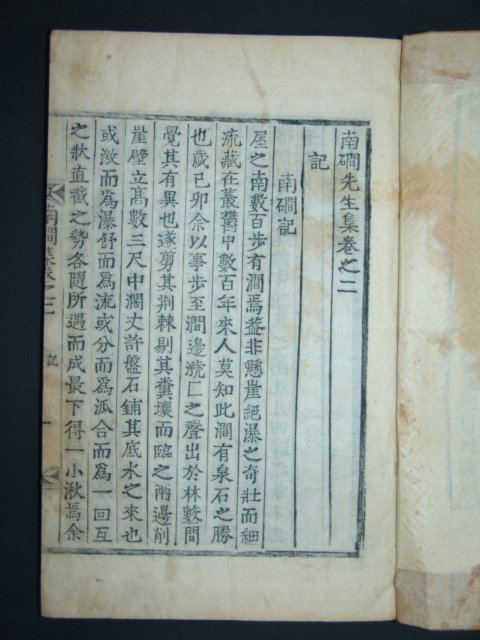 南磵先生集卷之二
記
南磵記
屋之南數百步有澗焉盖非懸崖絕瀑之奇壯而細
流藏在叢欝中數百年來人莫知此澗有泉石之勝
也歲己卯余以事步至澗邊之聲出於林藪間
覺其有異也遂剪其荊棘剔其糞壤而臨之兩邊削
崖壁立高數三尺中濶丈許盤石鋪其底水之來也
或激而爲瀑舒而爲流或分而爲泒合而爲一回互
之狀直截之勢各隨所遇而成最下得一小湫焉余
南磵集卷之二 記